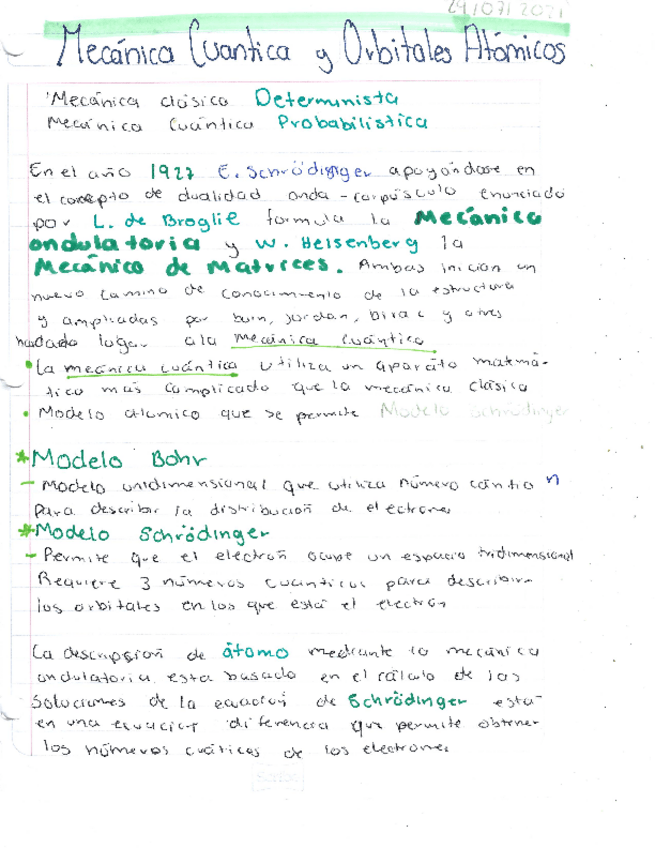 29/07/2021
Mecánica Cuantica y Orbitales Atómicos
Mecánica clásica Determinista
Mecánica Cuántica Probabilistica
En el año 1927 E. Schrödinger apoyándose en
el concepto de dualidad onda-corpúsculo enunciado
por L. de Broglie formula la Mecánica
ondulatoria y W. Heisenberg la
Mecánica de Matrices. Ambas inician un
nuevo camino de conocimiento de la estructura
y ampliadas por born, jordan, Dirac y otros
lugar a la mecánica cuántica
• La mecánica cuántica utiliza un aparato matemá-
tico mas complicado que la mecánica clásica
• Modelo atomico que se permite Modelo Schrödinger
*Modelo Bohr
- Modelo unidimensional que utiliza número cántio n
Para describir la distribución de electrones
*Modelo Schrödinger
- Permite que el electrón ocupe un espacio tridimensional
Requiere 3 números cuánticos para describir
los orbitales en los que está el electrón
La descripción de átomo mediante la mecánica
ondulatoria esta basado en el cálculo de las
Soluciones de la ecuación de Schrödinger esta
en una ecuación diferencia que permite obtener
los números cuáticos de los electrones